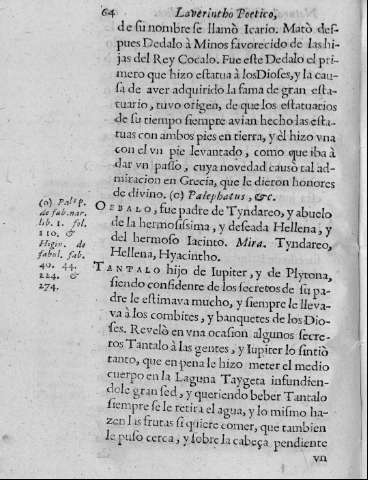 64 Laverintho Poetico,
de su nombre se llamò Icario. Matò des-
pues Dedalo à Minos favorecido de las hi-
jas del Rey Cocalo. Fue este Dedalo el pri-
mero que hizo estatua à los Dioses, y la cau-
sa de aver adquirido la fama de gran esta-
tuario, tuvo origen, de que los estatuarios
de su tiempo siempre avian hecho las esta-
tuas con ambos pies en tierra, y èl hizo vna
con el vn pie levantado, como que iba à
dar vn passo, cuya novedad causò tal ad-
miracion en Grecia, que le dieron honores
de divino. (o) Palephatus, &c.
OEBALO, fue padre de Tyndareo, y abuelo
de la hermosissima, y deseada Hellena, y
del hermoso Iacinto. Mira. Tyndareo,
Hellena, Hyacintho.
TANTALO hijo de Iupiter, y de Plytona,
siendo confidente de los secretos de su pa-
dre le estimava mucho, y siempre le lleva-
va à los combites, y banquetes de los Dio-
ses. Revelò en vna ocasion algunos secre-
tos Tantalo à las gentes, y Iupiter lo sintiò
tanto, que en pena le hizo meter el medio
cuerpo en la Laguna Taygeta infundien-
dole gran sed, y queriendo beber Tantalo
siempre se le retira el agua, y lo mismo ha-
zen las frutas si quiere comer, que tambien
le puso cerca, y sobre la cabeça pendiente
vn
(o) Palęp.
de fab. nar.
lib. 1. fol.
110. &
Higin. de
fabol. fab.
40. 44.
224. &
274.